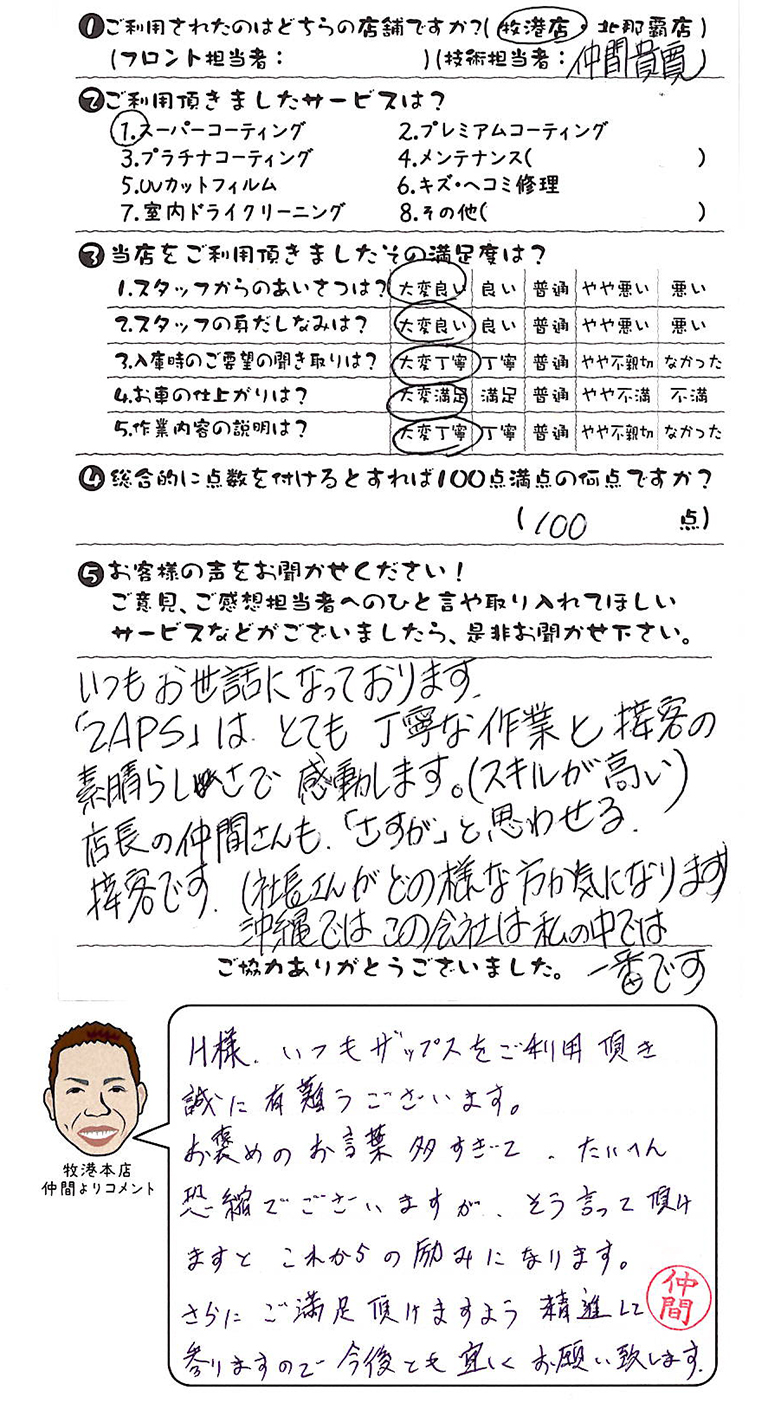 ❶ご利用されたのはどちらの店舗ですか?(牧港店・北那覇店)
(フロント担当者: )(技術担当者:仲間貴寛)
❷ご利用頂きましたサービスは?
1.スーパーコーティング 2.プレミアムコーティング
3.プラチナコーティング 4.メンテナンス( )
5.UVカットフィルム 6.キズ・ヘコミ修理
7.室内ドライクリーニング 8.その他( )
❸当店をご利用頂きましたその満足度は?
1.スタッフからのあいさつは? 大変良い 良い 普通 やや悪い 悪い
2.スタッフの身だしなみは? 大変良い 良い 普通 やや悪い 悪い
3.入庫時のご要望の聞き取りは? 大変丁寧 丁寧 普通 やや不親切 なかった
4.お車の仕上がりは? 大変満足 満足 普通 やや不満 不満
5.作業内容の説明は? 大変丁寧 丁寧 普通 やや不親切 なかった
❹総合的に点数を付けるとすれば100点満点の何点ですか?
(100 点)
❺お客様の声をお聞かせください!
ご意見、ご感想担当者へのひと言や取り入れてほしい
サービスなどがございましたら、是非お聞かせ下さい。
いつもお世話になっております。
「ZAPS」は とても 丁寧な作業と接客の
素晴らしさで 感動します。(スキルが高い)
店長の仲間さんも、「さすが」と思わせる
接客です。(社長さんがどの様な方か気になります)
沖縄ではこの会社は私の中では
ご協力ありがとうございました。 一番です
H様、いつもザップスをご利用頂き
誠に有難うございます。
お褒めのお言葉多すぎて、たいへん
恐縮でございますが、そう言って頂け
ますと これからの励みになります。
さらに ご満足頂けますよう 精進して
参りますので今後とも宜しくお願い致します。
仲間
牧港本店
仲間よりコメント